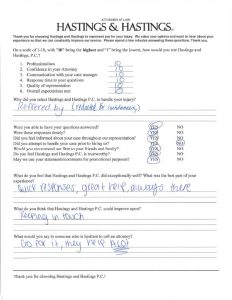 ATTORNEYS AT LAW
HASTINGS & HASTINGS
Thank you for choosing Hastings and Hastings to represent you for your injury. We value your opinion and want to hear about your
experience so that we can constantly improve our service. Please spend a few minutes answering these questions. Thank you.
On a scale of 1-10, with "10" being the highest and "1" being the lowest, how would you rate Hastings and
Hastings, P.C.?
1. Professionalism 10
2. Confidence in your Attorney 10
3. Communication with your case manager 10
4. Response time to your questions 10
5. Quality of representation 10
6. Overall expectations met 10
Why did you select Hastings & Hastings P.C. to handle your injury?
Referred by
Were you able to have your questions answered? YES NO
Were your calls returned? YES NO
Did you feel informed about your case throughout our representation? YES NO
Did you attempt to handle your case prior to hiring us? YES NO
Would you recommend our firm to your friends and family? YES NO
Do you feel Hastings and Hastings is trustworthy? YES NO
May we use your statements/comments for promotional purposes? YES NO
What do you think that Hastings and Hastings P.C. did exceptionally well? What was the best part of your
experience?
Quick responses, great help, always there
What do you think that Hastings and Hastings P.C. could improve upon?
Keeping in touch
What would you say to someone who is hesitant to call an attorney?
Go for it, they help ALOT
Thank you for choosing Hastings & Hastings P.C.